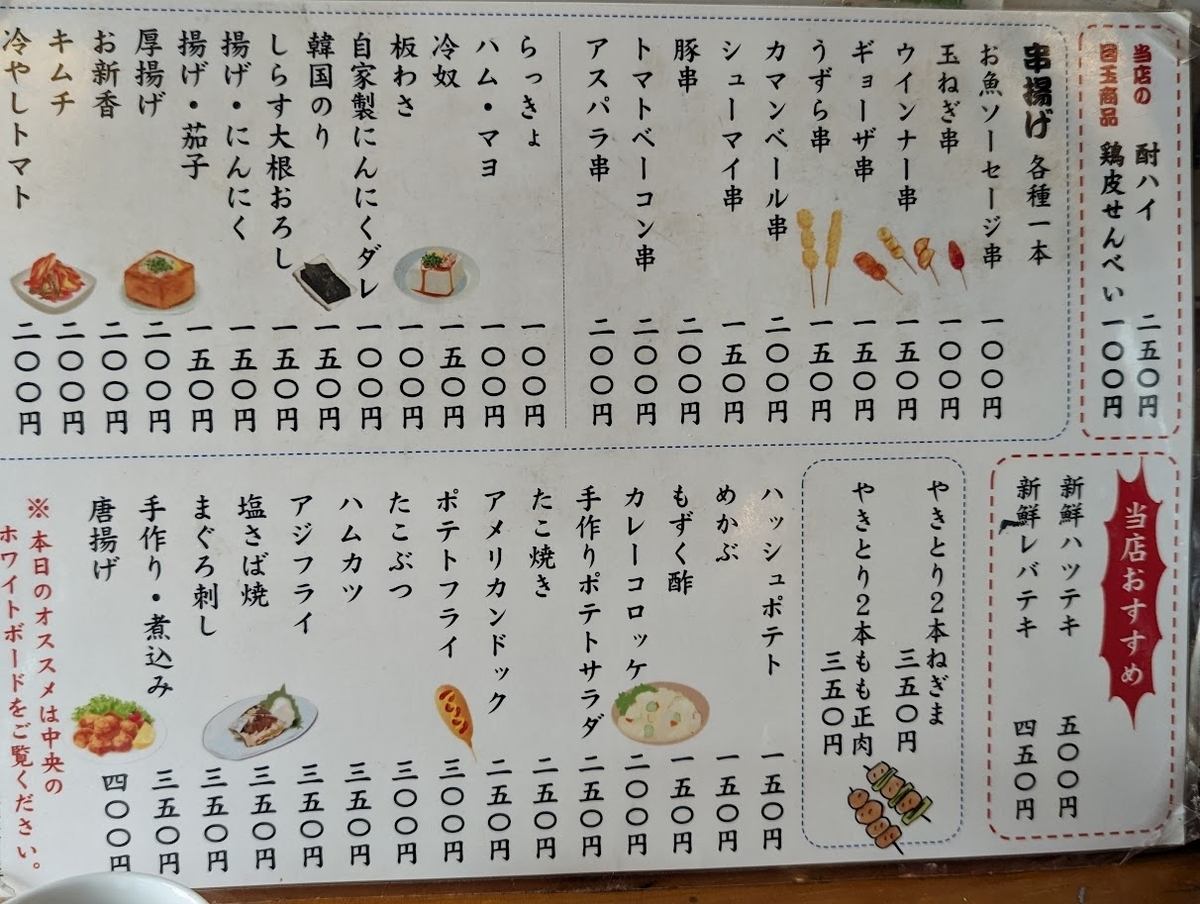 当店の
目玉商品
酎ハイ 二五〇円
鶏皮せんべい 一〇〇円
串揚げ 各種一本
お魚ソーセージ串 一〇〇円
玉ねぎ串 一〇〇円
ウインナー串 一五〇円
ギョーザ串 一五〇円
うずら串 一五〇円
カマンベール串 二〇〇円
シューマイ串 一五〇円
豚串 二〇〇円
トマトベーコン串 二〇〇円
アスパラ串 二〇〇円
らっきょ 一〇〇円
ハム・マヨ 一〇〇円
冷奴 一五〇円
板わさ 一〇〇円
自家製にんにくダレ 一〇〇円
韓国のり 一五〇円
しらす大根おろし 一五〇円
揚げ・にんにく 一五〇円
揚げ・茄子 一五〇円
厚揚げ 二〇〇円
お新香 二〇〇円
キムチ 二〇〇円
冷やしトマト 二〇〇円
当店おすすめ
新鮮ハツテキ 五〇〇円
新鮮レバテキ 四五〇円
やきとり2本ねぎま
三五〇円
やきとり2本もも正肉
三五〇円
ハッシュポテト 一五〇円
めかぶ 一五〇円
もずく酢 一五〇円
カレーコロッケ 二〇〇円
手作りポテトサラダ 二五〇円
たこ焼き 二五〇円
アメリカンドック 二五〇円
ポテトフライ 三〇〇円
たこぶつ 三〇〇円
ハムカツ 三五〇円
アジフライ 三五〇円
塩さば焼 三五〇円
まぐろ刺し 三五〇円
手作り・煮込み 三五〇円
唐揚げ 四〇〇円
※本日のオススメは中央の
ホワイトボードをご覧ください。